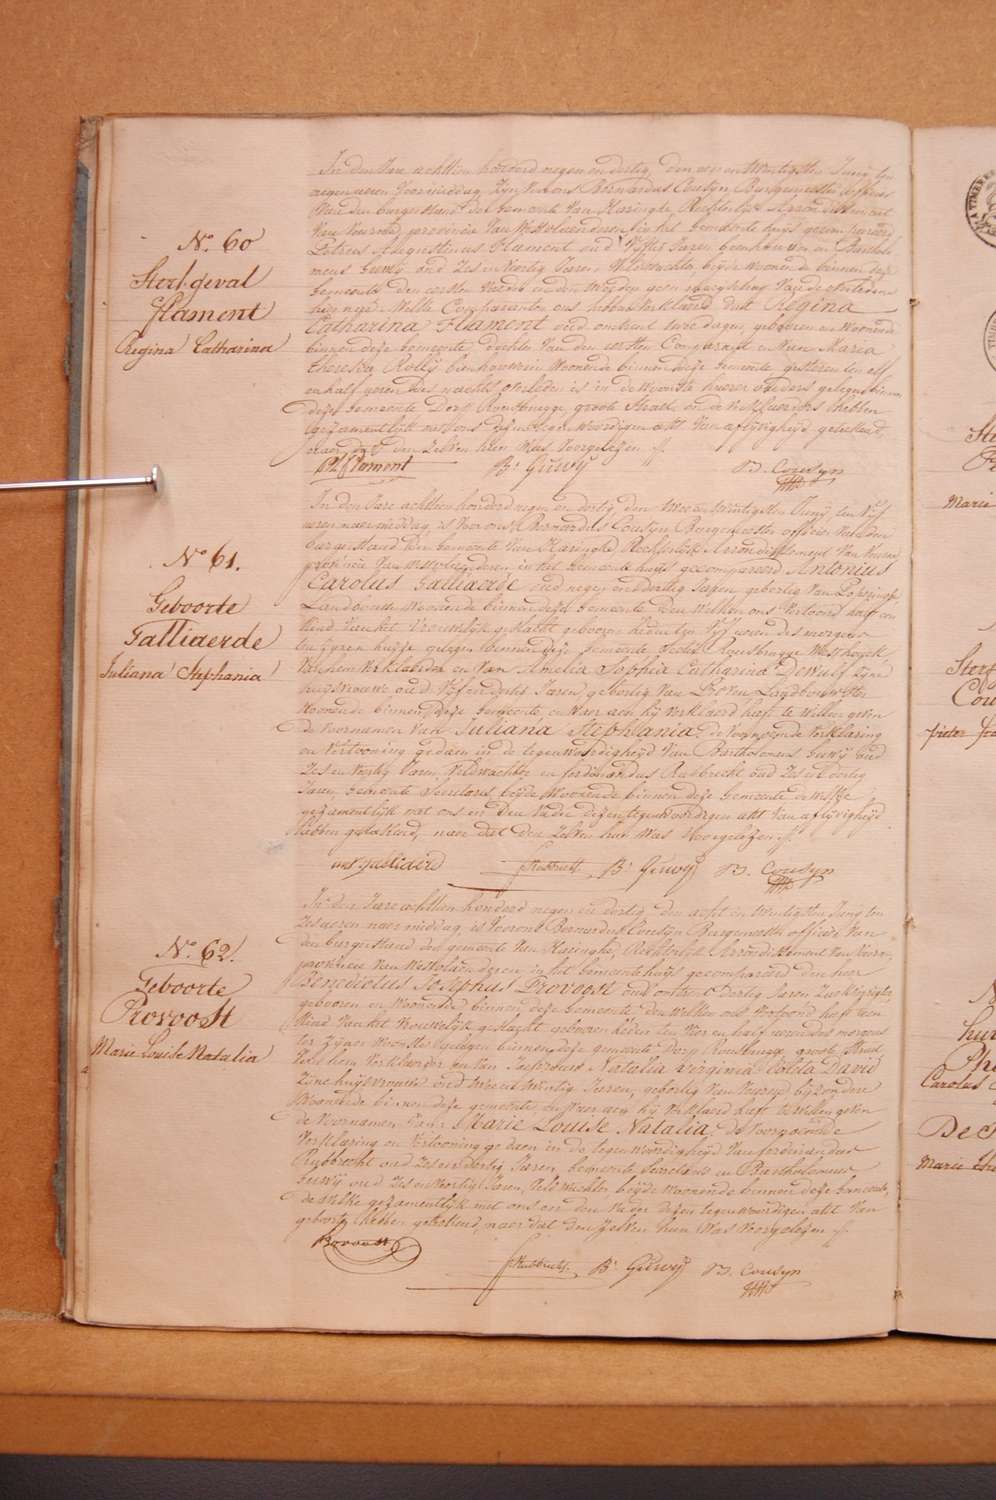 N.º 60
Sterfgeval
Flament
Regina Catharina
In den Jare achttien honderd negen en dertig, den een en twintigsten Juny, ten
negen uren voormiddag, Zyn voor ons Bernardus Cousyn, Burgemeester officier
van den burgerstand der gemeente van Haringhe, Rechterlyk Arrondissement
van Veurne, provincie van Westvlaenderen, in het gemeente huys gecompareerd
Petrus Augustinus Flament oud vyftig Jaren, en Bartholo-
meus Geuwy oud Zes en Veertig Jaren, Veldwachter, beyde Woonende binnen deze
gemeente den eersten Vader en den tweeden geen maegschap van de overledene
hier naer. Welke Comparanten ons hebben verklaerd dat Regina
Catharina Flament oud omtrent twee dagen, geboren en Woonende
binnen deze Gemeente dochter van den eersten Comparant en van Maria
Theresia Rolly Woonende binnen deze gemeente gisteren ten elf
en half uren des nachts overleden is in de Woonste haerer ouders gelegen binnen
deze Gemeente Dorp Rousbrugge, groote Straet, en de verklaerders hebben
gezamentlyk met ons dezen tegenwoordigen akt van aflyvigheyd geteekend,
naer dat den zelven hun Was Voorgelezen
P. A. Flament B. Geuwy B. Cousyn
N.º 61.
Geboorte
Talliaerde
Juliana Stephania
In den Jare achttien honderd negen en dertig, den twee en twintigsten Juny, ten Vyf
uren naermiddag, is Voor ons Bernardus Cousyn Burgemeester officier van den
burgerstand der gemeente van Haringhe, Rechterlyk Arrondissement van Veurne
provincie van Westvlaenderen in het gemeente huys gecompareerd Antonius
Carolus Talliaerde oud negen en dertig Jaren, geboortig van
Landbouwer Woonende binnen deze gemeente Den Welken ons vertoond heeft een
Kind van het Vrouwelyk geslacht geboren heden ten Vyf uren des morgens
ten zynen huyze gelegen binnen deze gemeente Rousbrugge Westhoek
Van hem Verklaerder en van Amelia Sophia Catharina DeWulf zyne
huysvrouwe oud Vyf en dertig Jaren, geboortig van Landbouwster
Woonende binnen deze Gemeente en Waer aen hy verklaerd heeft te willen geven
de voornamen van Juliana Stephania, de voornoemde verklaring
en vertooning gedaen in de tegenwoordigheyd van Bartholomeus Geuwy oud
Zes en Veertig Jaren Veldwachter en ferdinandus Rubbrecht oud Zes en dertig
Jaren, gemeente Secretaris, beyde Woonende binnen deze Gemeente dewelke
gezamentlyk met ons en den Vader dezen tegenwoordigen akt van aflyvigheyd
hebben geteekend, naer dat den zelven hun Was Voorgelezen
Talliaerd F. Rubbrecht B. Geuwy B. Cousyn
N.º 62.
Geboorte
Provoost
Marie Louise Natalia
In den Jare achttien honderd negen en dertig den acht en twintigsten Juny ten
Zes uren naermiddag, is Voor ons Bernardus Cousyn Burgemeester officier van
den burgerstand der gemeente van Haringhe, Rechterlyk Arrondissement van Veurne,
provincie van Westvlaenderen, in het Gemeente huys gecompareerd den heer
Benedictus Josephus Provoost oud omtrent dertig Jaren
geboren en Woonende binnen deze Gemeente den Welken ons vertoond heeft een
Kind van het Vrouwelyk geslacht geboren heden ten Vier en half uren des morgens
ter zyner Woonste gelegen binnen deze gemeente Dorp Rousbrugge, groote Straet,
van hem verklaerder en van Jufvrouw Natalia Virginia Coleta David
Zyne huysvrouwe oud twee en twintig Jaren, geboortig van
Woonende binnen deze gemeente en Waer aen hy verklaerd heeft te willen geven
de Voornamen van Marie Louise Natalia, de Voornoemde
Verklaring en Vertooning gedaen in de tegenwoordigheyd van ferdinandus
Rubbrecht oud Zes en dertig Jaren, Gemeente Secretaris en Bartholomeus
Geuwy oud Zes en Veertig Jaren, Veldwachter, beyde Woonende binnen deze Gemeente,
de Welke gezamentlyk met ons en den Vader dezen tegenwoordigen akt van
geboorte hebben geteekend, naer dat den zelven hun Was Voorgelezen
Provoost F. Rubbrecht B. Geuwy B. Cousyn
Marie
pieter
Carolus
De
Marie